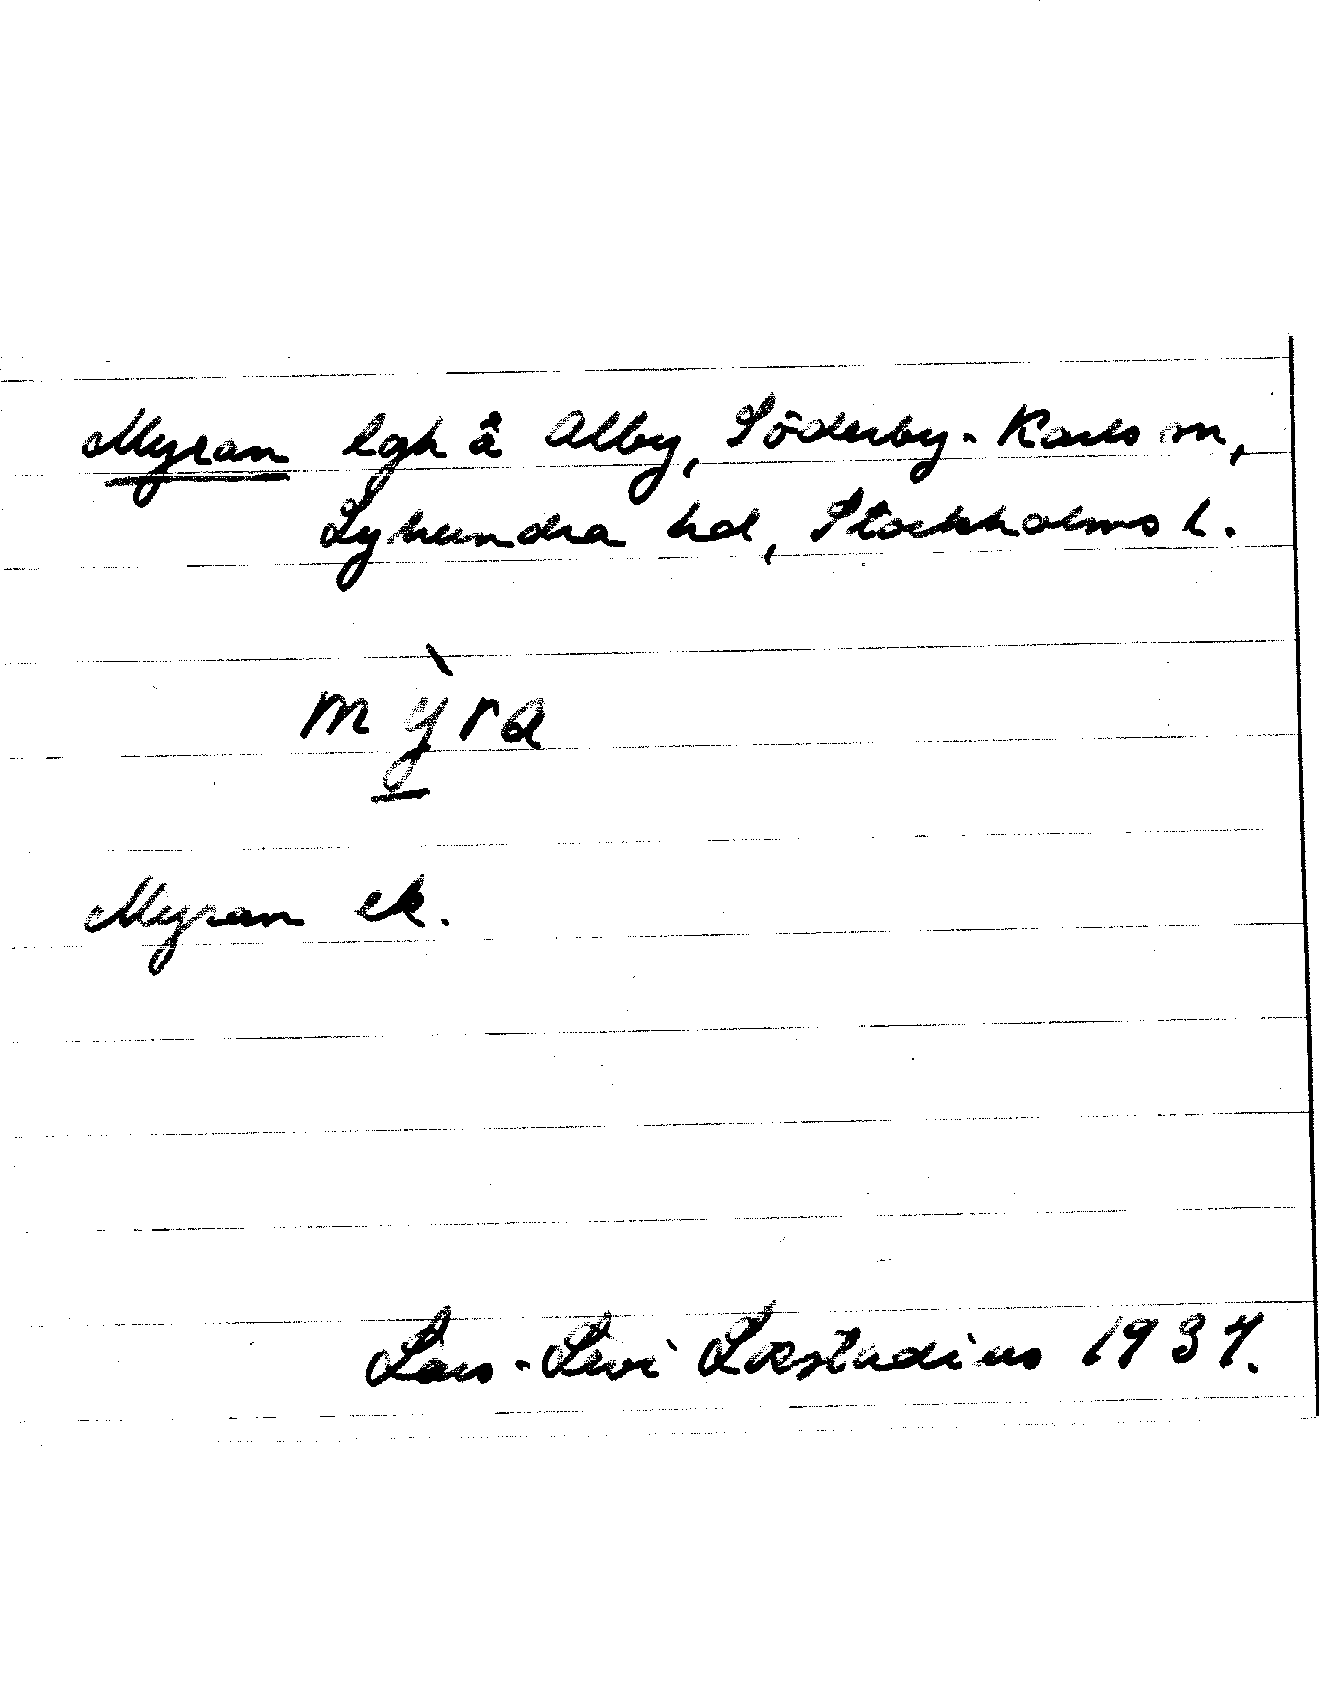 Myran lgh å Alby, Söderby-Karls sn,
Lyhundra hd, Stockholms l.
mỳra
Myran ek.
Lars-Levi Læstadius 1937.